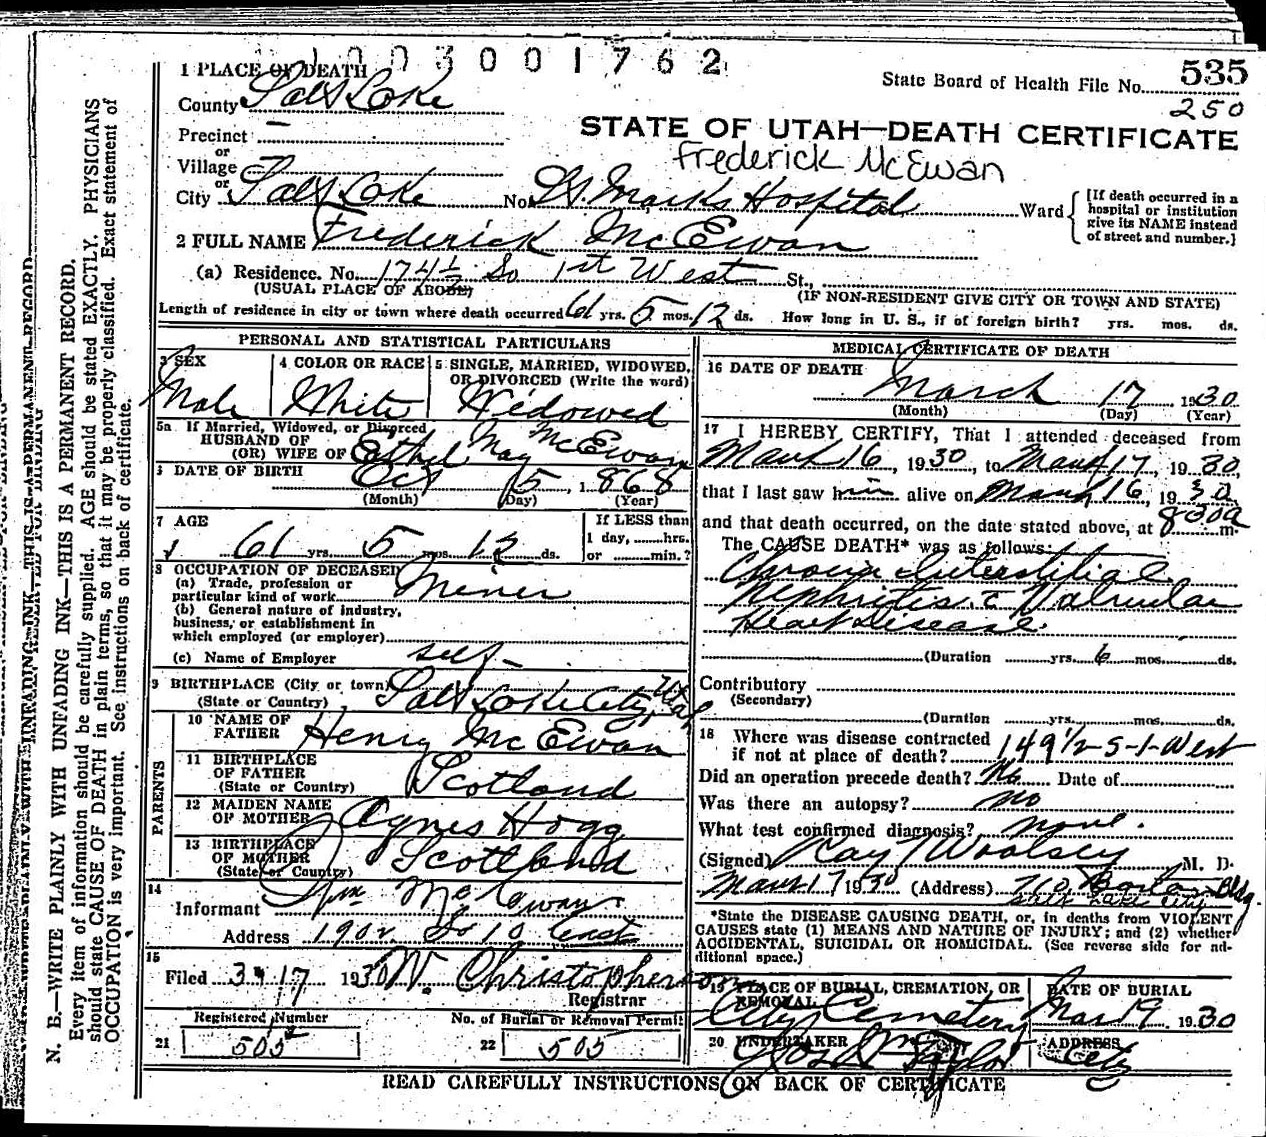 1003001762
1 PLACE OF DEATH
State Board of Health File No. 535
County Salt Lake
250
Precinct —
STATE OF UTAH—DEATH CERTIFICATE
or
Frederick McEwan
Village
or
City Salt Lake No. St. Marks Hospital Ward
[If death occurred in a hospital or institution give its NAME instead of street and number.]
2 FULL NAME Frederick McEwan
(a) Residence. No. 174½ So 1st West St.,
(USUAL PLACE OF ABODE) (IF NON-RESIDENT GIVE CITY OR TOWN AND STATE)
Length of residence in city or town where death occurred 61 yrs. 5 mos. 12 ds. How long in U. S., if of foreign birth? yrs. mos. ds.
PERSONAL AND STATISTICAL PARTICULARS
3 SEX
Male
4 COLOR OR RACE
White
5 SINGLE, MARRIED, WIDOWED, OR DIVORCED (Write the word)
Widowed
5a If Married, Widowed, or Divorced
HUSBAND OF
(OR) WIFE OF Ethel May McEwan
DATE OF BIRTH Oct 15, 1868
(Month) (Day) (Year)
7 AGE
61 yrs. 5 mos. 12 ds.
If LESS than
1 day, hrs.
or min.?
8 OCCUPATION OF DECEASED
(a) Trade, profession or
particular kind of work Miner
(b) General nature of industry,
business, or establishment in
which employed (or employer)
(c) Name of Employer self
9 BIRTHPLACE (City or town) Salt Lake City, Utah
(State or Country)
PARENTS
10 NAME OF
FATHER Henry McEwan
11 BIRTHPLACE
OF FATHER
(State or Country) Scotland
12 MAIDEN NAME
OF MOTHER Agnes Hogg
13 BIRTHPLACE
OF MOTHER
(State or Country) Scotland
14
Informant Wm McEwan
Address 1902 So 10 East
15
Filed 3-17 1930 W. Christopherson
Registrar
Registered Number
21 505
No. of Burial or Removal Permit
22 505
MEDICAL CERTIFICATE OF DEATH
16 DATE OF DEATH
March 17, 1930
(Month) (Day) (Year)
17 I HEREBY CERTIFY, That I attended deceased from
March 16, 1930, to March 17, 1930,
that I last saw him alive on March 16, 1930
and that death occurred, on the date stated above, at 830a m.
The CAUSE DEATH* was as follows:
Chronic Interstitial
Nephritis c Valvular
Heart Disease.
(Duration yrs. 6 mos. ds.
Contributory
(Secondary)
(Duration yrs. mos. ds.
18 Where was disease contracted
if not at place of death? 149½-S-1-West
Did an operation precede death? No Date of
Was there an autopsy? no
What test confirmed diagnosis? none.
(Signed) Ray T Woolsey M. D.
March 17 1930 (Address) 710 Bldg.
Salt Lake City
*State the DISEASE CAUSING DEATH, or, in deaths from VIOLENT
CAUSES state (1) MEANS AND NATURE OF INJURY; and (2) whether
ACCIDENTAL, SUICIDAL OR HOMICIDAL. (See reverse side for additional space.)
19 PLACE OF BURIAL, CREMATION, OR
REMOVAL
City Cemetery
DATE OF BURIAL
Mar 19, 1930
20 UNDERTAKER
Jos Wm Taylor
ADDRESS
City
READ CAREFULLY INSTRUCTIONS ON BACK OF CERTIFICATE
N. B.—WRITE PLAINLY WITH UNFADING INK—THIS IS A PERMANENT RECORD.
Every item of information should be carefully supplied. AGE should be stated EXACTLY. PHYSICIANS
should state CAUSE OF DEATH in plain terms, so that it may be properly classified. Exact statement of
OCCUPATION is very important. See instructions on back of certificate.